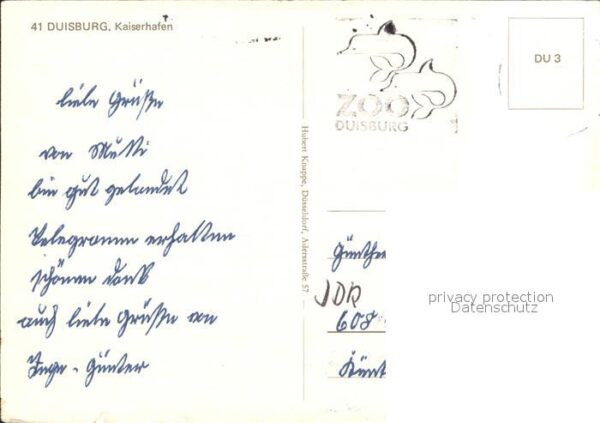 41 DUISBURG, Kaiserhafen
liebe Grüße
von Mutti
bin gut gelandet
Telegramm erhalten
schönen Dank
auch liebe Grüße an
Inge - Günter
Hubert Knappe, Düsseldorf, Adersstraße 57
ZOO
DUISBURG
DU 3
Günther
DDR
608
privacy protection
Datenschutz